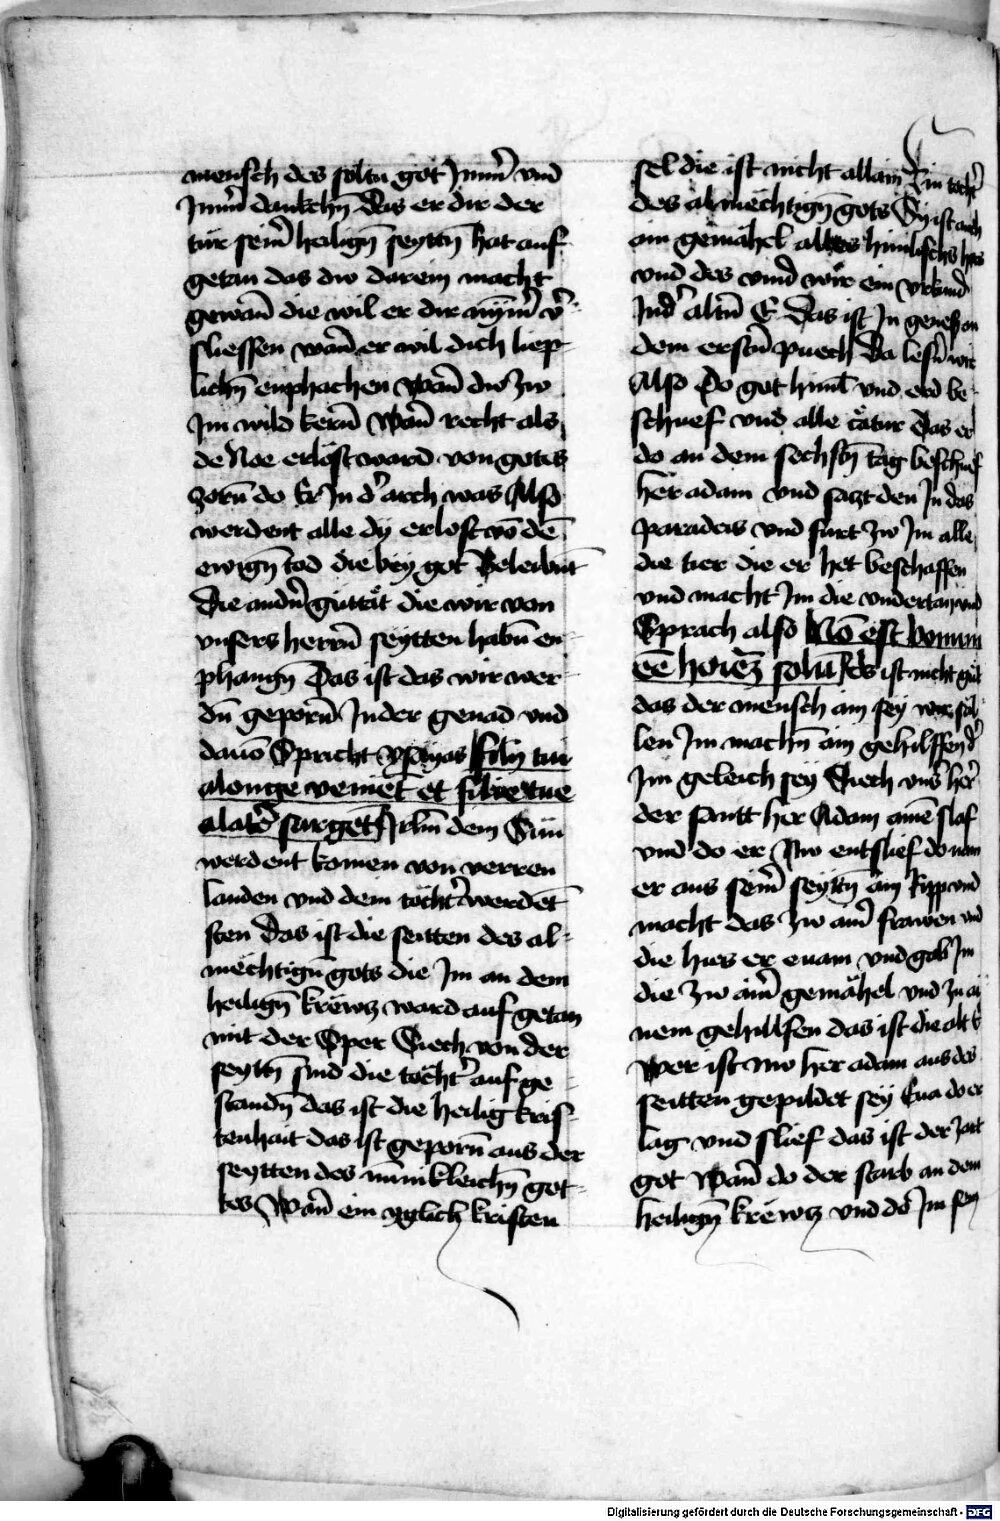 mensch des soltu got Jmm̄ vnd
Jmm̄ dankchn̄ Das er dir der
tür seim̄ heilign̄ seyttn̄ hat auf
getan das dw darein macht
gewan̄ die wil er dir nȳm̄ v̄-
sliessen wan̄ er wil dich liep-
lichn̄ enphachen Wan̄ dw zw
Jm wild kern̄ Wan̄ recht als
de Noe erlöst ward von gotes
zorn̄ do Er Jn d' arch was Also
werdent alle dy erlost vō dē
ewign̄ tod die bey got beleibn̄t
Die andn̄ guttät die wir von
vnsers herrn̄ seytten habn̄ en-
phangn̄ Das ist das wir wer-
dn̄ geporn̄ Jn der genad vnd
dauō Spricht ysayas filij tui
alonge venient et filie tue
alatē surgēt Jrlm̄ dem Sün
werdent komen von verren
landen vnd dem töcht' werdēt
sten Das ist die seitten des al-
mechtign̄ gots die Jm an dem
heilign̄ krewtz ward auf getan
mit der Sper Siech von der
seyttn̄ sind die töcht' auf ge-
standn̄ das ist die heilig kris-
tenhait das ist geporn̄ aus der
seytten des mīnikleichn̄ got-
tes Wan̄ ein yglich kristen
sel die ist nicht allain Ein tocht'
des almechtign̄ gots Sy ist auch
ain gemahel alles himlischs hers
vnd des vind wir ein vrkund
Jn d' altn̄ E Das ist Jn genesy an
dem erstn̄ puech Da lesn̄ wir
Also Do got himl vnd erd be-
schuef vnd alle catur Das er
do an dem sechstn̄ tag beschuef
her adam vnd satzt den Jn das
paradeis vnd furt zw Jm alle
die tier die er het beschaffen
vnd macht Jm die vndertan vnd
Sprach also Nō est bonum
eē hoiēz solū Es ist nicht gut
das der mensch ain sey wir söl-
len Jm machn̄ ain gehilffen d'
Jm geleich sey Siech vns' her'
der santt her Adam ainē slaf
vnd do er Nw entslief do nam
er aus seim̄ seyttn̄ ain Ripp vnd
macht das zw ain̄ frawen vnd
die hies er euam vnd gab Jm
die zw aim̄ gemähel vnd zu ai
nem gehilfen das ist die alt E
Wer ist nw her adam aus des
seitten gepildet sey Eua do er
lag vnd slief das ist der zart
got Wan̄ do der starb an dem
heilign̄ krewtz vnd do Jm sein
Digitalisierung gefördert durch die Deutsche Forschungsgemeinschaft - DFG